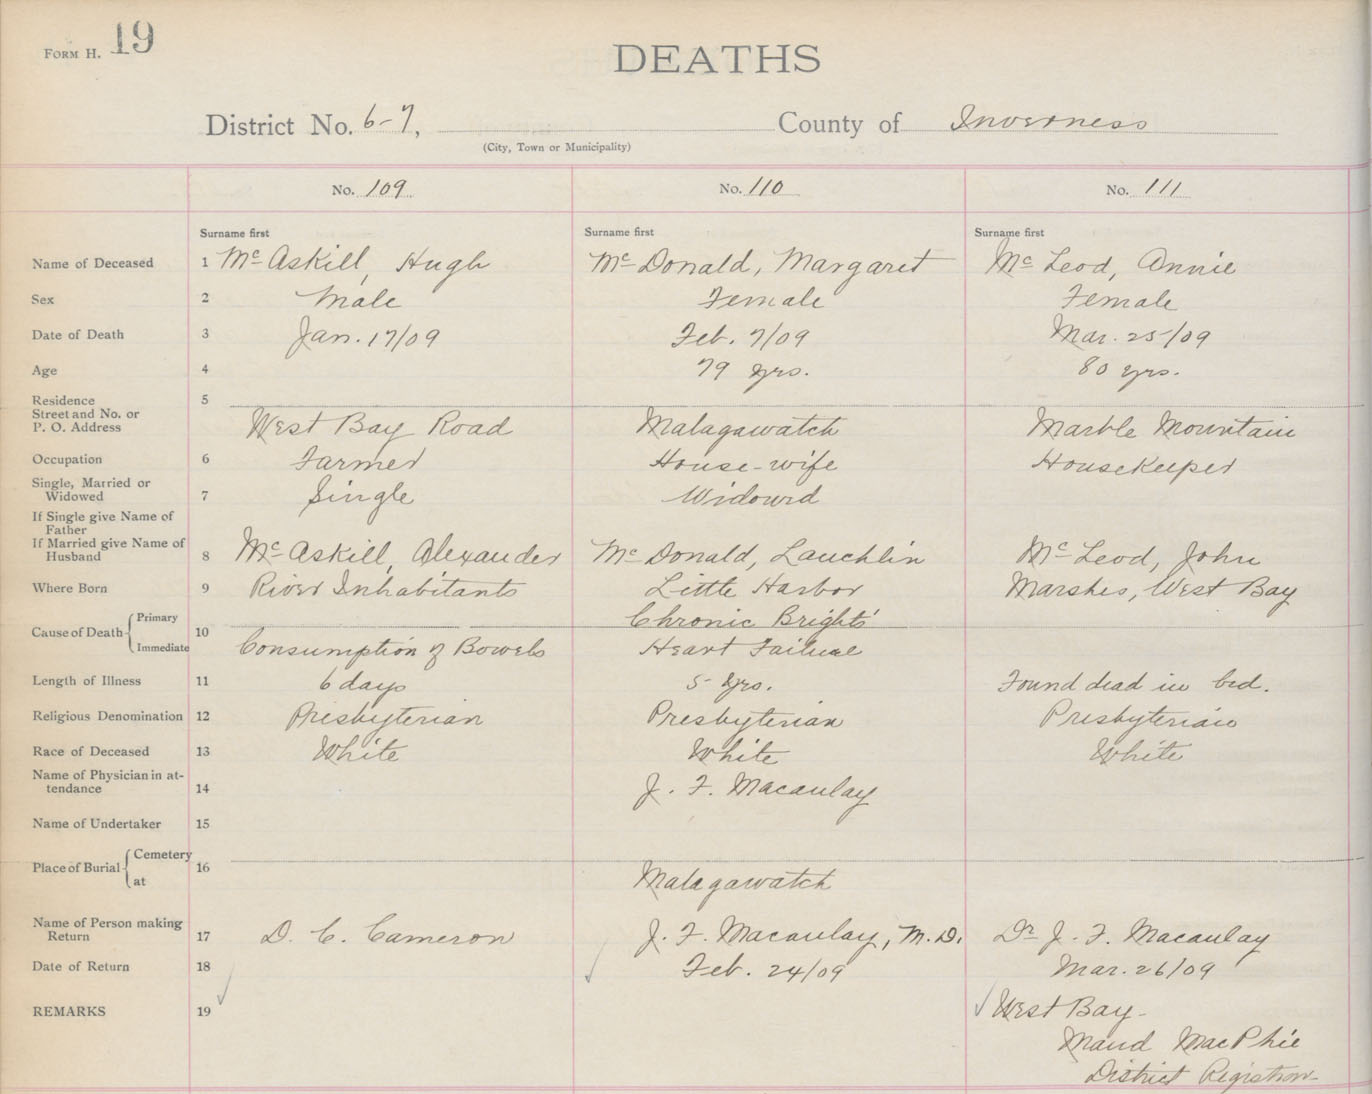 Form H. 19
DEATHS
District No. 6-7, County of Inverness
(City, Town or Municipality)
No. 109 No. 110 No. 111
Surname first Surname first Surname first
Name of Deceased 1 Mc Askill, Hugh Mc Donald, Margaret Mc Leod, Annie
Sex 2 Male Female Female
Date of Death 3 Jan. 17/09 Feb. 7/09 Mar. 25/09
Age 4 79 yrs. 80 yrs.
Residence 5
Street and No. or
P. O. Address West Bay Road Malagawatch Marble Mountain
Occupation 6 Farmer House-wife Housekeeper
Single, Married or
Widowed 7 Single Widowd
If Single give Name of
Father
If Married give Name of
Husband 8 Mc Askill, Alexander Mc Donald, Lauchlin Mc Leod, John
Where Born 9 River Inhabitants Little Harbor Marshes, West Bay
Cause of Death Primary 10 Chronic Brights'
Immediate Consumption of Bowels Heart Failure
Length of Illness 11 6 days 5 yrs. Found dead in bed.
Religious Denomination 12 Presbyterian Presbyterian Presbyterian
Race of Deceased 13 White White White
Name of Physician in at-
tendance 14 J. F. Macaulay
Name of Undertaker 15
Place of Burial Cemetery 16
at Malagawatch
Name of Person making
Return 17 D. C. Cameron J. F. Macaulay, M.D. Dr J. F. Macaulay
Date of Return 18 Feb. 24/09 Mar. 26/09
REMARKS 19 West Bay-
Maud MacPhie
District Registrar